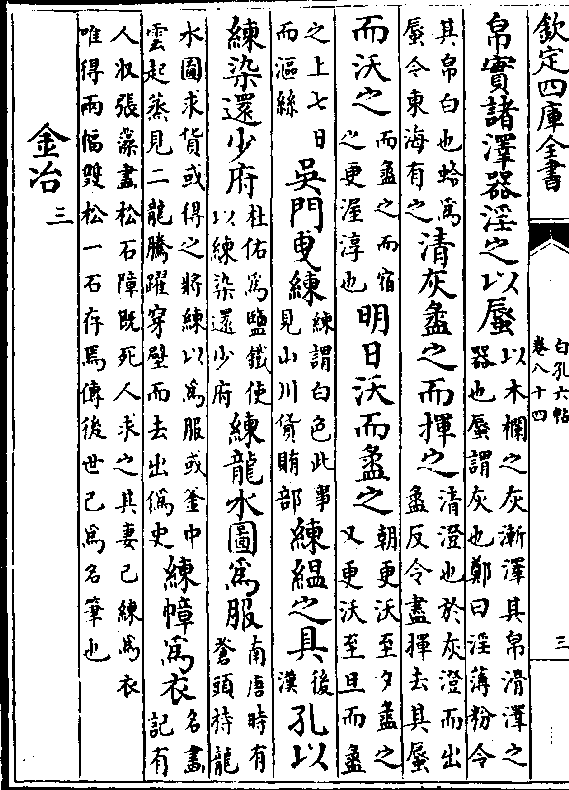 欽定四庫全書
白孔六帖
卷八十四
三
帛實諸澤器淫之以蜃以木欄之灰漸澤其帛滑澤之
器也蜃謂灰也鄭曰淫薄粉令
其帛白也蛤為
蜃令東海有之清灰盝之而揮之清澄也於灰澄而出
盝反令盡揮去其蜃
而沃之而盝之而宿
之更渥淳也明日沃而盝之朝更沃至夕盝之
又更沃至旦而盝
之上七日
而漚絲吳門曳練練謂白色此事
見山川貨賄部練緼之具後
漢孔以
練染還少府杜佑為鹽鐵使
以練染還少府練龍水圖為服南唐時有
蒼頭持龍
水圖求貨或得之將練以為服或釜中
雲起蒸見二龍騰躍穿壁而去出偽史練幛為衣名畫
記有
人收張藻畫松石障既死人求之其妻已練為衣
唯得兩幅雙松一石存焉傳後世已為名筆也
金冶三